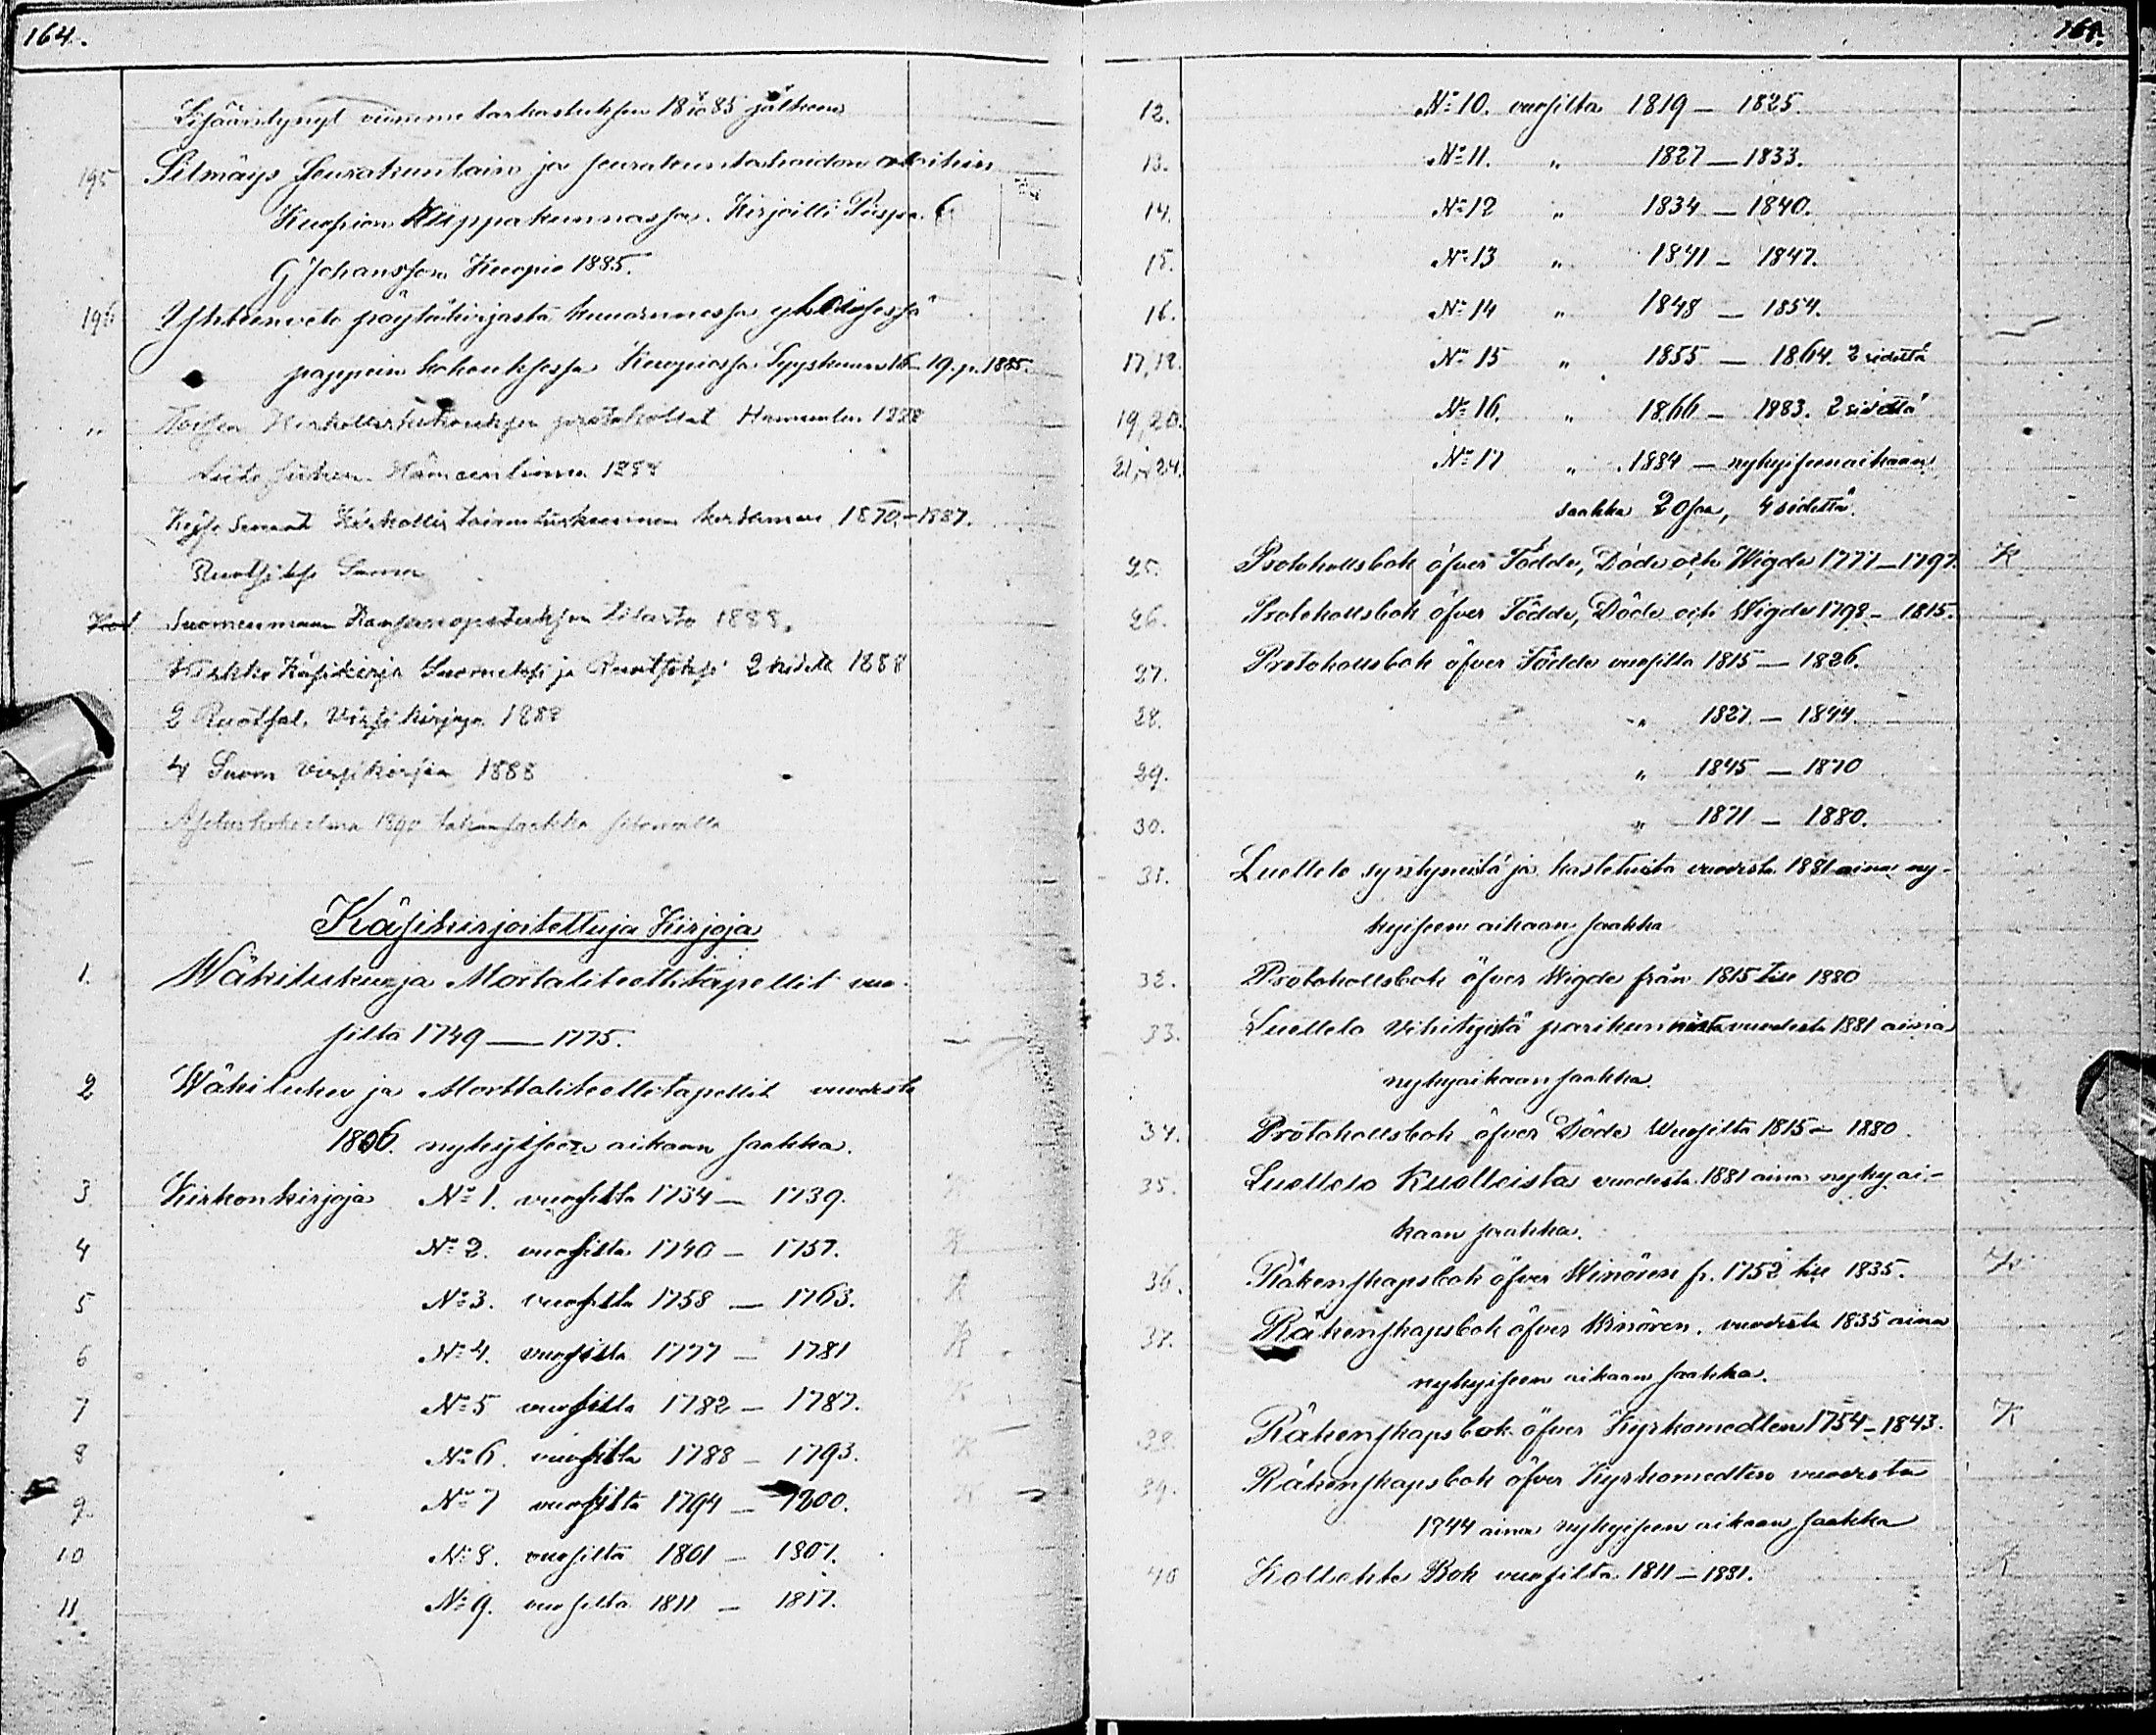 164.
Lisääntynyt viimme tarkastuksen 18 4/10 85 jälkeen
195 Silmäys seurakuntain ja seurakuntahoidon oloihin
Kuopion Hiippakunnassa. Kirjoitti Piispa
G Johansson Kuopio 1885.
196 Yhteenveto pöytäkirjasta kuudennessa yhteisessä
pappein kokouksessa Kuopiossa Syyskuun 16–19. p. 1885.
" Toisen Kirkolliskokouksen protokollat
Liite siihen Hämeenlinna
Kirkollis toimituskunnan kertomus 1870–1887.
Ruotsiksi
Suomenmaan Kansanopetuksen tilasto 1888.
Kirkko Käsikirja Suomeksi ja Ruotsiksi 2 1888
2 Ruotsal. Virsikirjaa 1888
4 Suom Virsikirjaa 1888
Asetuskokoelma 1890 saakka
Käsikirjoitettuja Kirjoja
1. Wäkiluku ja Mortaliteettitapellit vuo-
silta 1749 — 1775.
2 Wäkiluku ja Morttaliteettitapellit vuodesta
1806. nykyiseen aikaan saakka.
3 Kirkonkirjoja No 1. vuosilta 1734 — 1739. K
4 No 2. vuosilta 1740 — 1757. K
5 No 3. vuosilta 1758 — 1763. K
6 No 4. vuosilta 1777 — 1781 K
7 No 5 vuosilta 1782 — 1787. K
8 No 6. vuosilta 1788 — 1793. K
9. No 7 vuosilta 1794 — 1800. K
10 No 8. vuosilta 1801 — 1807.
11 No 9. vuosilta 1811 — 1817.
12. No 10. vuosilta 1819 — 1825.
13. No 11. " 1827 — 1833.
14. No 12 " 1834 — 1840.
15. No 13 " 1841 — 1847.
16. No 14 " 1848 — 1854.
17, 18. No 15 " 1855 — 1864. 2 sidettä
19, 20. No 16. " 1866 — 1883. 2 sidettä
21, 24. No 17 " 1884 — nykyiseen aikaan
saakka 2 osaa, 4 sidettä.
25. Protokollsbok öfver Födde, Döde och Wigde 1777—1797. K
26. Protokollsbok öfver Födde, Döde och Wigde 1798 — 1815.
27. Protokollsbok öfver Födde vuosilta 1815 — 1826.
28. " 1827 — 1844.
29. " 1845 — 1870
30. " 1871 — 1880.
31. Luettelo syntyneistä ja kastetuista vuodesta 1881 aina ny-
kyiseen aikaan saakka
32. Protokollsbok öfver Wigde från 1815 till 1880
33. Luettelo Vihityistä parikunnista vuodesta 1881 aina
nykyaikaan saakka.
34. Protokollsbok öfver Döde Wuosilta 1815 — 1880
35. Luettelo Kuolleista vuodesta 1881 aina nykyai-
kaan saakka.
36. Räkenskapsbok öfver Winören fr. 1752 till 1835. K
37. Räkenskapsbok öfver Winören. vuodesta 1835 aina
nykyiseen aikaan saakka.
38. Räkenskapsbok öfver Kyrkomedlen 1754–1843. K
39. Räkenskapsbok öfver Kyrkomedlen vuodesta
1844 aina nykyiseen aikaan saakka
40 Kollekte Bok vuosilta 1811 — 1881. K